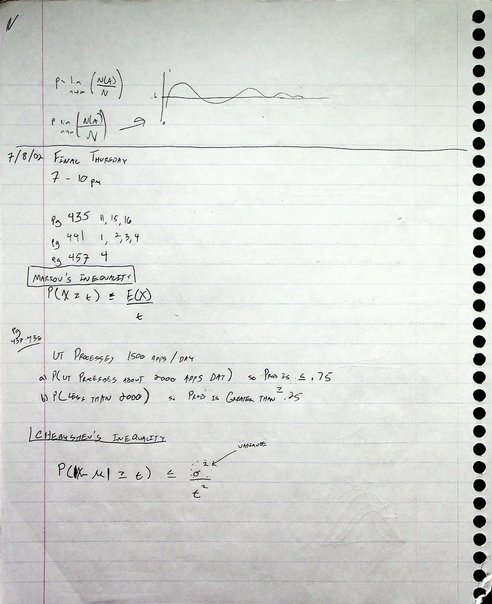 P = lim n→∞ (N(A)/N)
P lim n→∞ (N(A)/N)
7/8/02 FINAL THURSDAY
7 - 10 pm
pg 435 11, 15, 16
pg 441 1, 2, 3, 4
pg 457 4
MARKOV'S INEQUALITY
P(X ≥ t) ≤ E(X)/t
pg
437-438
UT PROCESSES 1500 APPS/DAY
a) P(UT PROCESSES ABOUT 2000 APPS DAY) SO PROB IS ≤ .75
b) P(LESS THAN 2000) SO PROB IS GREATER THAN ≥ .25
CHEBYSHEV'S INEQUALITY
VARIANCE
P(|X - μ| ≥ t) ≤ σ²/t²